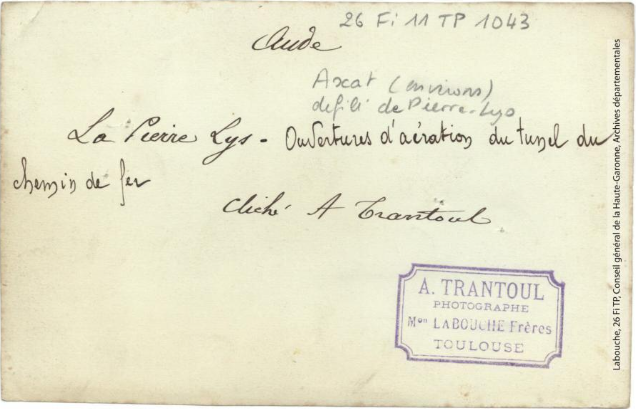 26 Fi 11 TP 1043
Aude
Axat (environs)
défilé de Pierre-Lys
La Pierre Lys - Ouvertures d'aération du tunel du
chemin de fer
cliché A Trantoul
A. TRANTOUL
PHOTOGRAPHE
Mon LABOUCHE Frères
TOULOUSE
Labouche, 26 Fi TP, Conseil général de la Haute-Garonne, Archives départementales